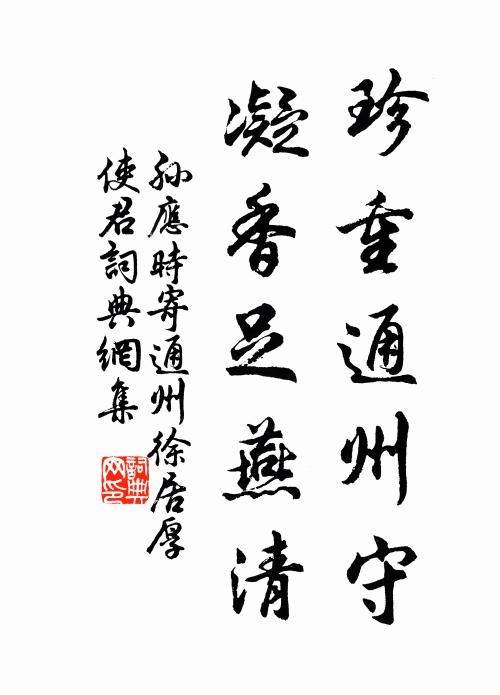 珍重通州守
凝香足燕清
孫應時寄通州徐居厚
使君詞典網集
詞典網印